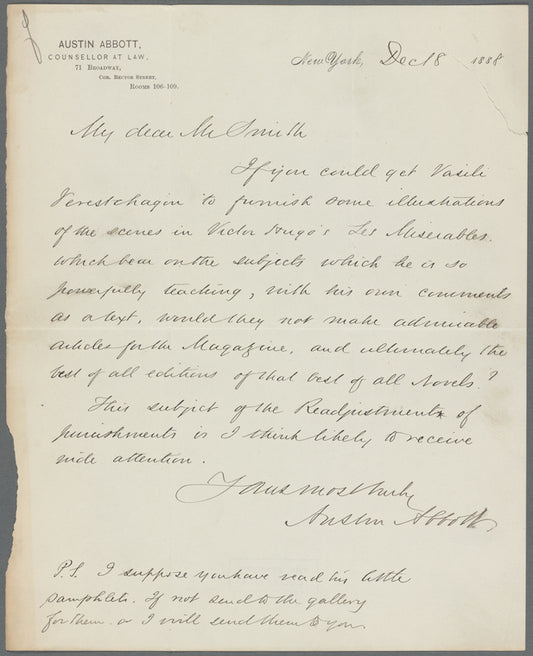 AUSTIN ABBOTT,
COUNSELLOR AT LAW,
71 BROADWAY,
COR. RECTOR STREET,
ROOMS 106-109.
New York, Dec 18 1888
My dear Mr Smith
If you could get Vasili
Verestchagin to furnish some illustrations
of the scenes in Victor Hugo's Les Miserables.
which bear on the subjects which he is so
powerfully teaching, with his own comments
as a text, would they not make admirable
articles for the Magazine, and ultimately the
best of all editions of that best of all Novels?
This subject of the Readjustment of
punishments is I think likely to receive
wide attention.
Yours most truly
Austin Abbott
P.S. I suppose you have read his little
pamphlets. If not send to the gallery
for them. or I will send them to you